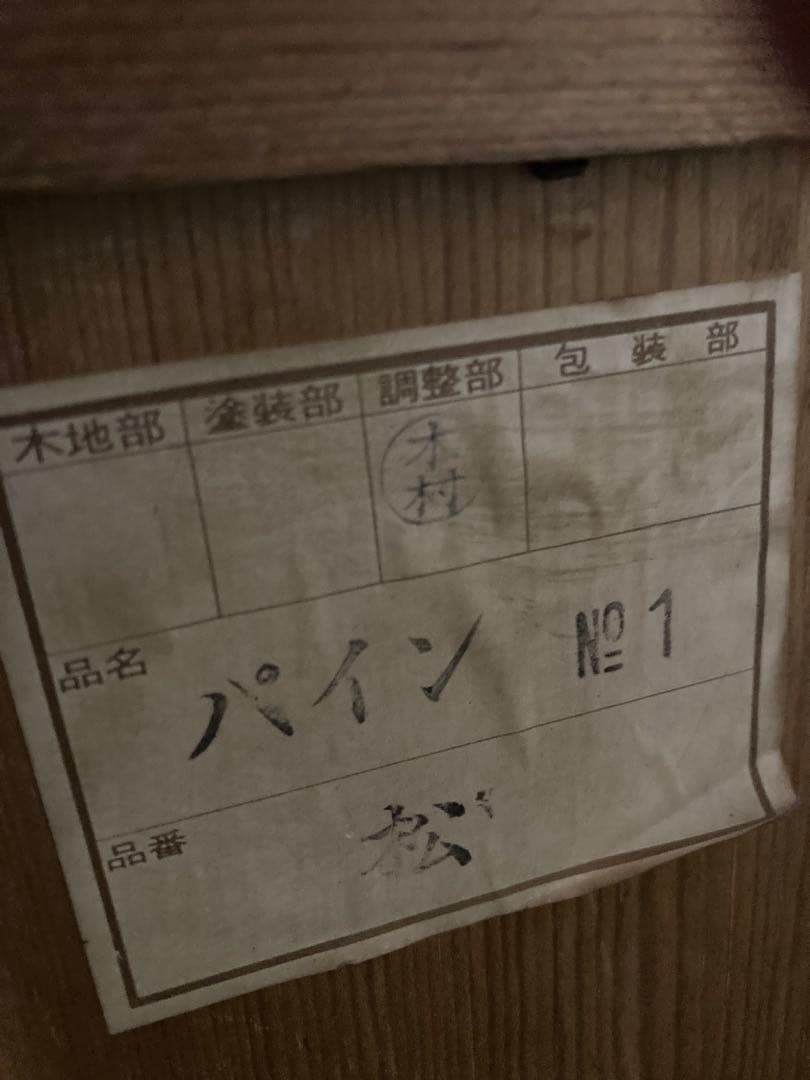 木地部 塗装部 調整部 包装部
木村
品名 パイン №1
品番 松